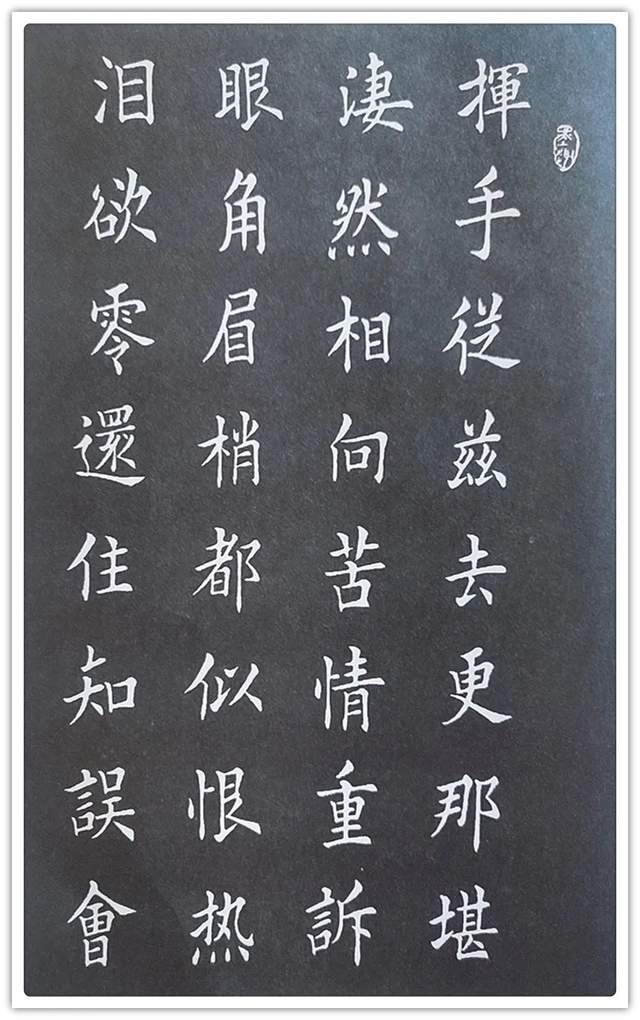 揮手従兹去更那堪
淒然相向苦情重訴
眼角眉梢都似恨热
泪欲零還住知誤會